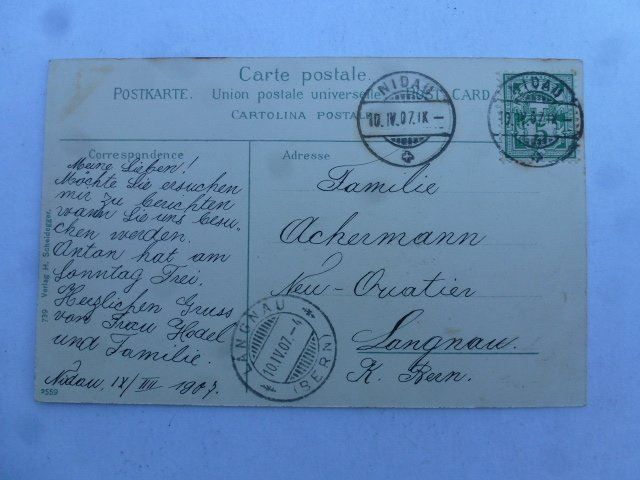 Carte postale.
POSTKARTE. Union postale universelle. POST CARD
CARTOLINA POSTALE
NIDAU
10.IV.07.IX-
NIDAU
10.IV.07.IX
5
Correspondence
Meine Lieben!
Möchte Sie ersuchen
mir zu berichten
wann Sie uns besu-
chen werden.
Anton hat am
Sonntag Frei.
Herzlichen Gruss
von Frau Hodel
und Familie.
Nidau, IX/IIII 1907.
Adresse
Familie
Achermann
Neu-Quatier
Langnau.
K. Bern.
LANGNAU
10.IV.07.-4
(BERN)
739 Verlag H. Scheidegger.
9559